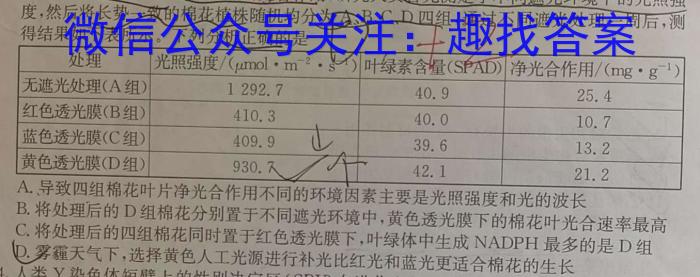 度,然后将长势一致的棉花植株随机均分为A、B、C、D四组
得结果
微信公众号关注：趣找答案
处理 光照强度/(μmol·m⁻²·s⁻¹) 叶绿素含量(SPAD) 净光合作用/(mg·g⁻¹)
无遮光处理(A组) 1 292.7 40.9 25.4
红色透光膜(B组) 410.3 40.0 10.7
蓝色透光膜(C组) 409.9 39.6 13.2
黄色透光膜(D组) 930.7 42.1 21.2
A.导致四组棉花叶片净光合作用不同的环境因素主要是光照强度和光的波长
B.将处理后的D组棉花分别置于不同遮光环境中,黄色透光膜下的棉花叶光合速率最高
C.将处理后的四组棉花同时置于红色透光膜下,叶绿体中生成NADPH最多的是D组
D.雾霾天气下,选择黄色人工光源进行补光比红光和蓝光更适合棉花的生长
人类Y染色体短臂上的性别决定